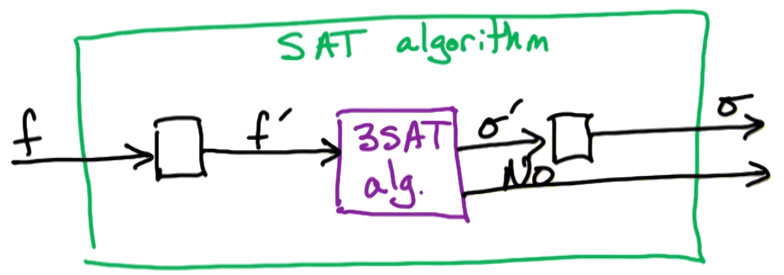 SAT algorithm
f
f′
3SAT
alg.
σ′
No
σ